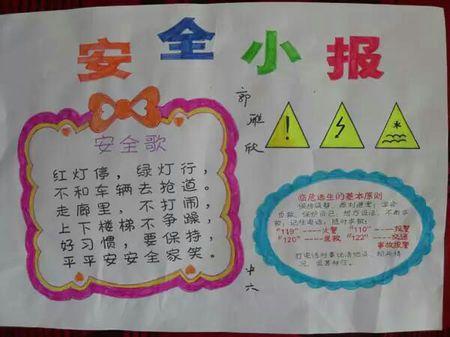 安全小报
郭雅欣
安全歌
红灯停，绿灯行，
不和车辆去抢道。
走廊里，不打闹，
上下楼梯不争躁，
好习惯，要保持，
平平安安全家笑。
中六
!
临危逃生的基本原则
保持镇静，
"119"----火警 "110"----报警
"120"----急救 "122"----交通
事故报警